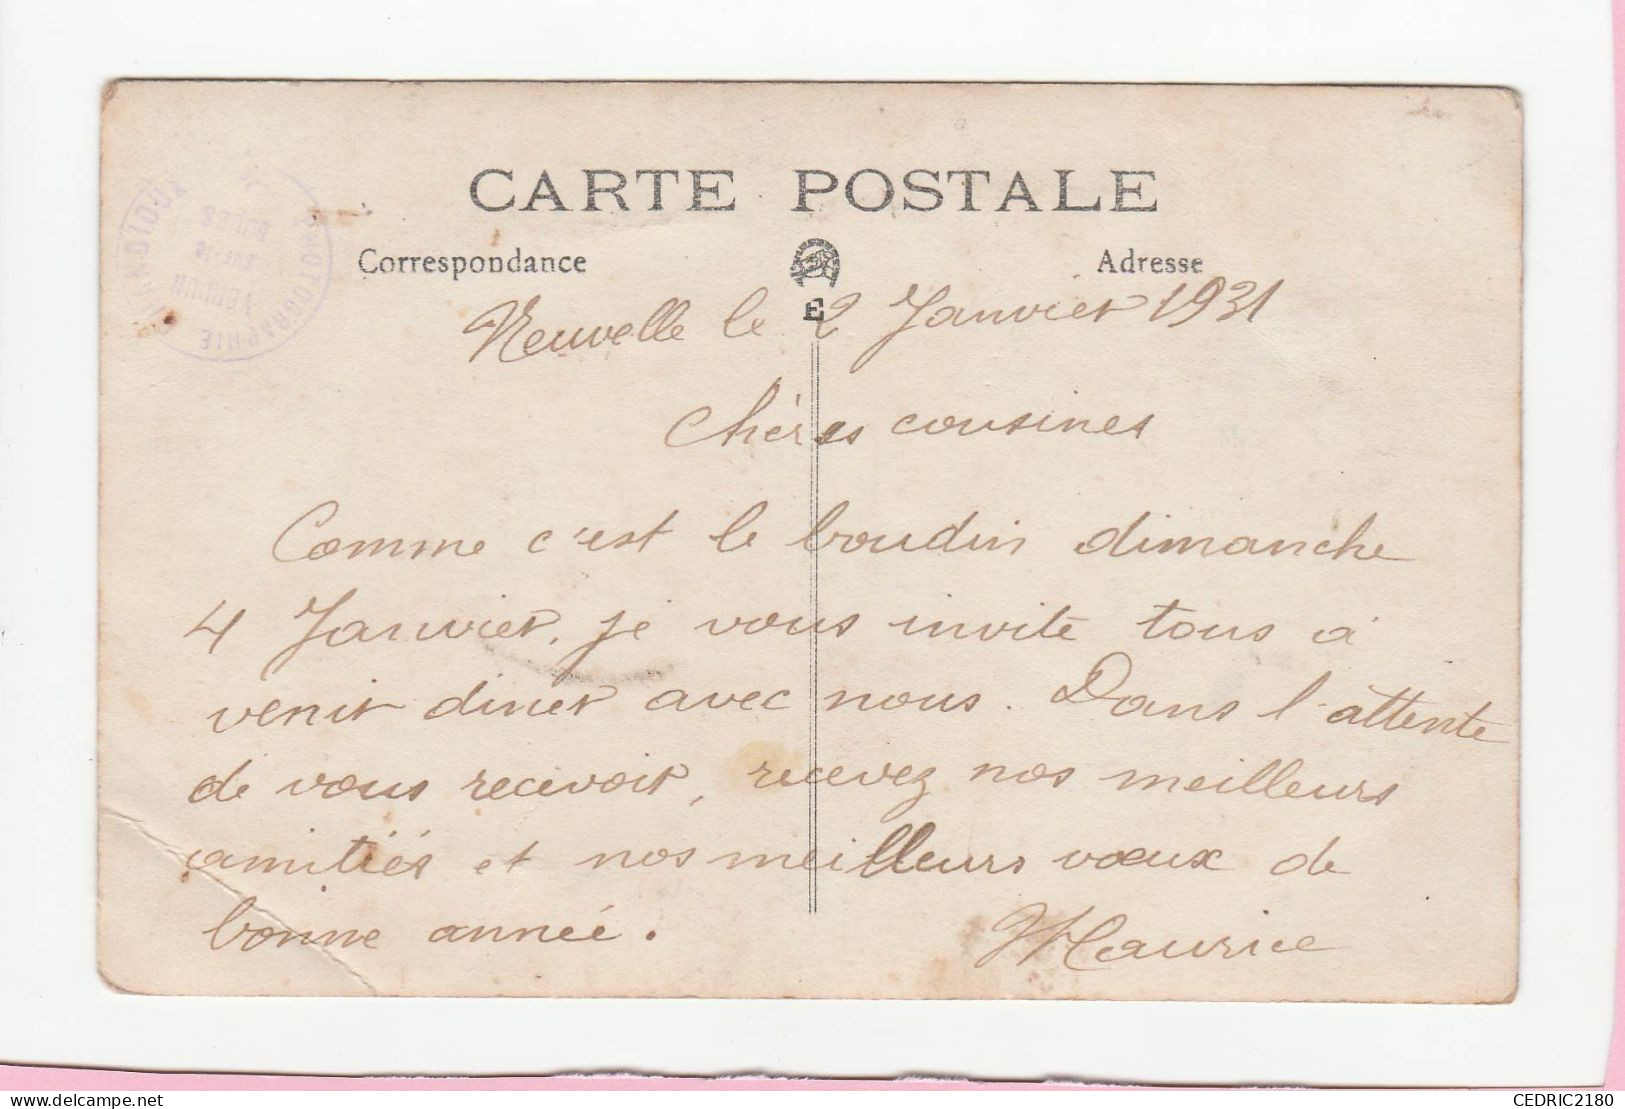 CARTE POSTALE
Correspondance
Adresse
E
PHOTOGRAPHIE
VERDUN
sur-le
DOUBS
Neuvelle le 2 Janvier 1931
Chères cousines
Comme c'est le boudin dimanche
4 Janvier, je vous invite tous à
venir diner avec nous. Dans l'attente
de vous recevoir, recevez nos meilleurs
amitiés et nos meilleurs vœux de
bonne année.
Maurice
CEDRIC2180
delcampe.net